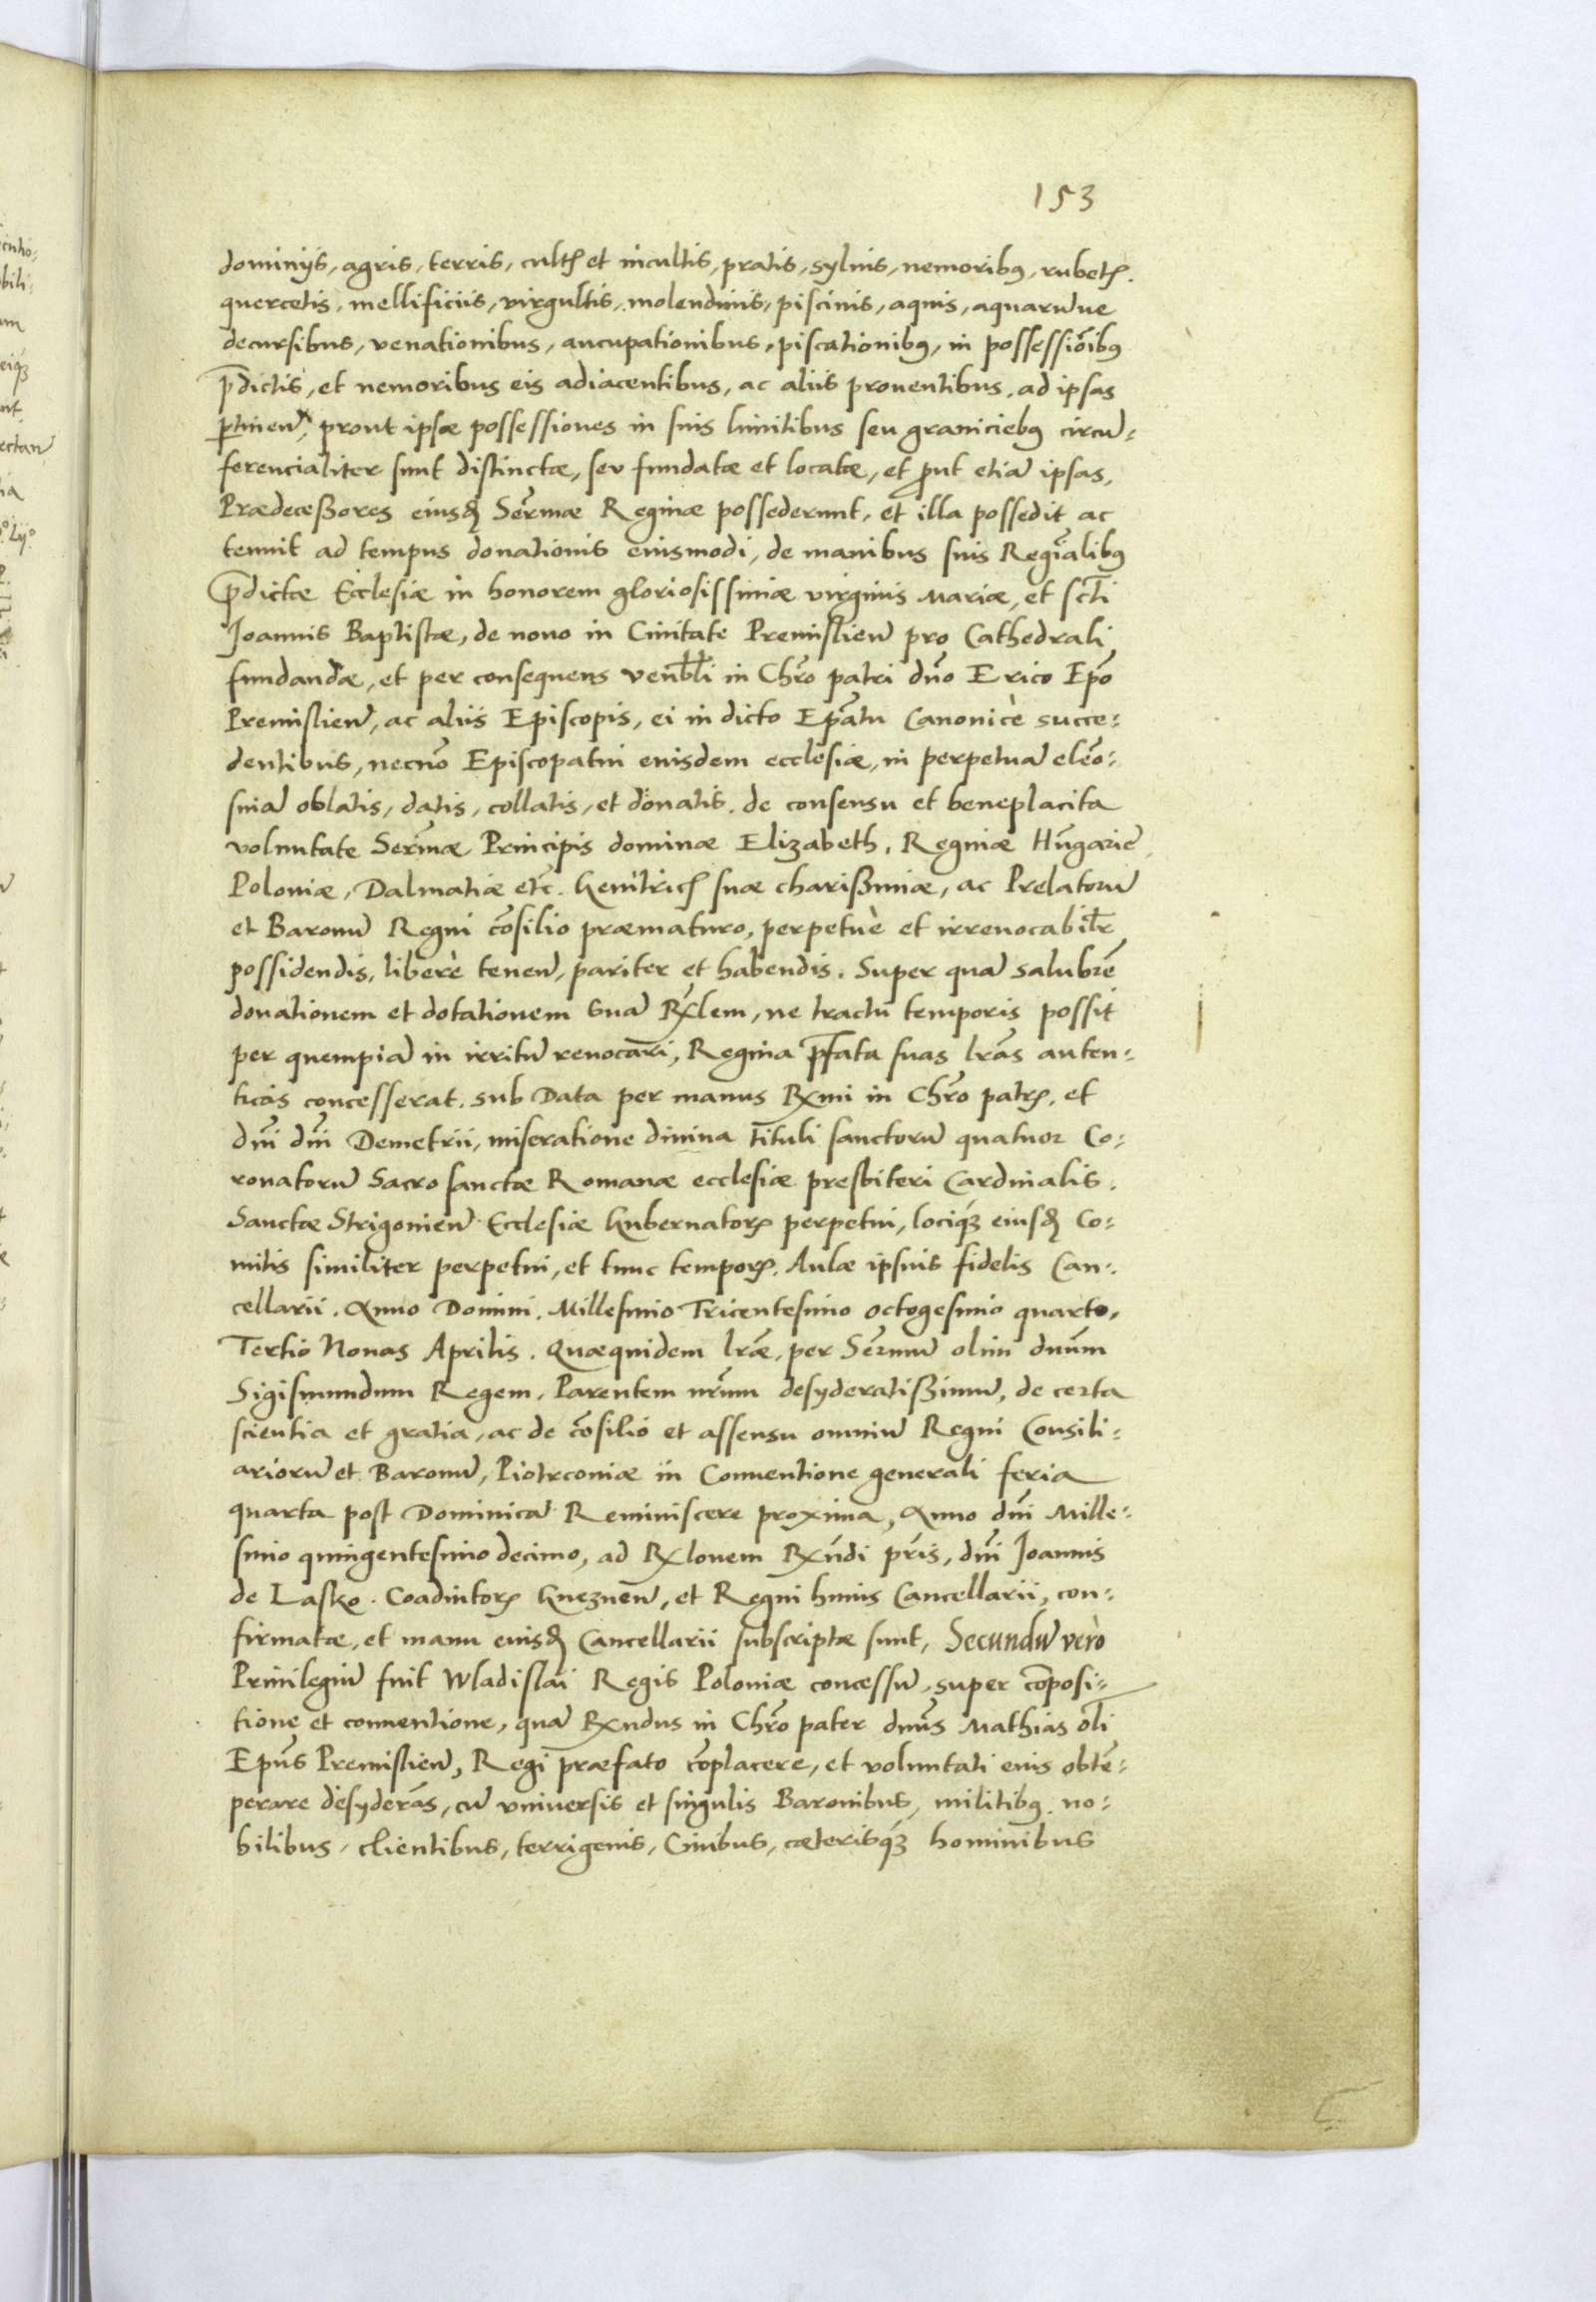 153
dominijs, agris, terris, cultꝭ et incultis, pratis, sylvis, nemoribꝰ, rubetꝭ.
quercetis, mellificiis, virgultis, molendinis, piscinis, aquis, aquarūue
decursibus, venationibus, aucupationibus, piscationibꝰ, in possessiōibꝰ
p̄dictis, et nemoribus eis adiacentibus, ac aliis prouentibus, ad ipsas
ꝑtineñ, prout ipsæ possessiones in suis limitibus seu graniciebꝰ circū-
ferencialiter sunt distinctæ, seu fundatæ et locatæ, et ꝓut etiā ipsas,
Prædeceßores eiusd̄ Serm̄æ Reginæ possederunt, et illa possedit ac
tenuit ad tempus donationis euismodi, de manibus suis Regīalibꝰ
p̄dictæ Ecclesiæ in honorem gloriosissimæ virginis Mariæ, et sct̄i
Joannis Baptistæ, de nouo in Ciuitate Premislieñ pro Cathedrali
fundandæ, et per consequens veneb̄li in Chr̄o patri dn̄o Erico Ep̄o
Premislieñ, ac aliis Episcopis, ei in dicto Ep̄atu Canonicè succe-
dentibus, necnō Episcopatui euisdem ecclesiæ, in perpetuā eleō-
sinā oblatis, datis, collatis, et donatis, de consensu et beneplacita
voluntate Serm̄æ Principis dominæ Elizabeth, Reginæ Hūgarie,
Poloniæ, Dalmatiæ etc̄. Genitricꝭ suæ charißimæ, ac Prelatorū
et Baronū Regni cōsilio præmaturo, perpetuè et irreuocabil̄r
possidendis, liberè teneñ, pariter et habendis. Super quā salubrē
donationem et dotationem suā Rx̄lem, ne tractu temporis possit
per quempiā in irritū reuocari, Regina p̄fata suas lr̄as auten-
ticas concesserat, sub Data per manus Rx̄mi in Chr̄o patrꝭ, et
dn̄i dn̄i Demetrii, miseratione diuina Tituli sanctorū quatuor Co-
ronatorū Sacrosanctæ Romanæ ecclesiæ presbiteri Cardinalis.
Sanctæ Strigonieñ Ecclesiæ Gubernatorꝭ perpetui, lociqꝫ eiusd̄ Co-
mitis similiter perpetui, et tunc temporꝭ. Aulæ ipsius fidelis Can-
cellarii. Anno Domini. Millesimo Tricentesimo octogesimo quarto,
Tertio Nonas Aprilis. Quæquidem lr̄æ, per Serm̄ū olim dnūm
Sigismundum Regem, Parentem nr̄um desyderatißimū, de certa
scientia et gratia, ac de cōsilio et assensu omniū Regni Consili-
ariorū et Baronū, Piotrconiæ in Conuentione generali feria
quarta post Dominicā Reminiscere proxima, Anno dn̄i Mille-
simo quingentesimo decimo, ad Rx̄lonem Rx̄ndi pr̄is, dn̄i Joannis
de Lasko. Coadiutorꝭ Gnezneñ, et Regni huius Cancellarii, con-
firmatæ, et manu euisd̄ Cancellarii subscriptæ sunt, Secundū vero
Priuilegiū fuit Wladislai Regis Poloniæ concessū, super cōposi-
tione et conuentione, quā Rx̄ndus in Chr̄o pater dnūs Mathias ol̄i
Epūs Premislieñ, Regi præfato cōplacere, et voluntati euis obtē-
perare desyderās, cū vniuersis et singulis Baronibus, militibꝰ, no-
bilibus, clientibus, terrigenis, Ciuibus, cæterisqꝫ hominibus